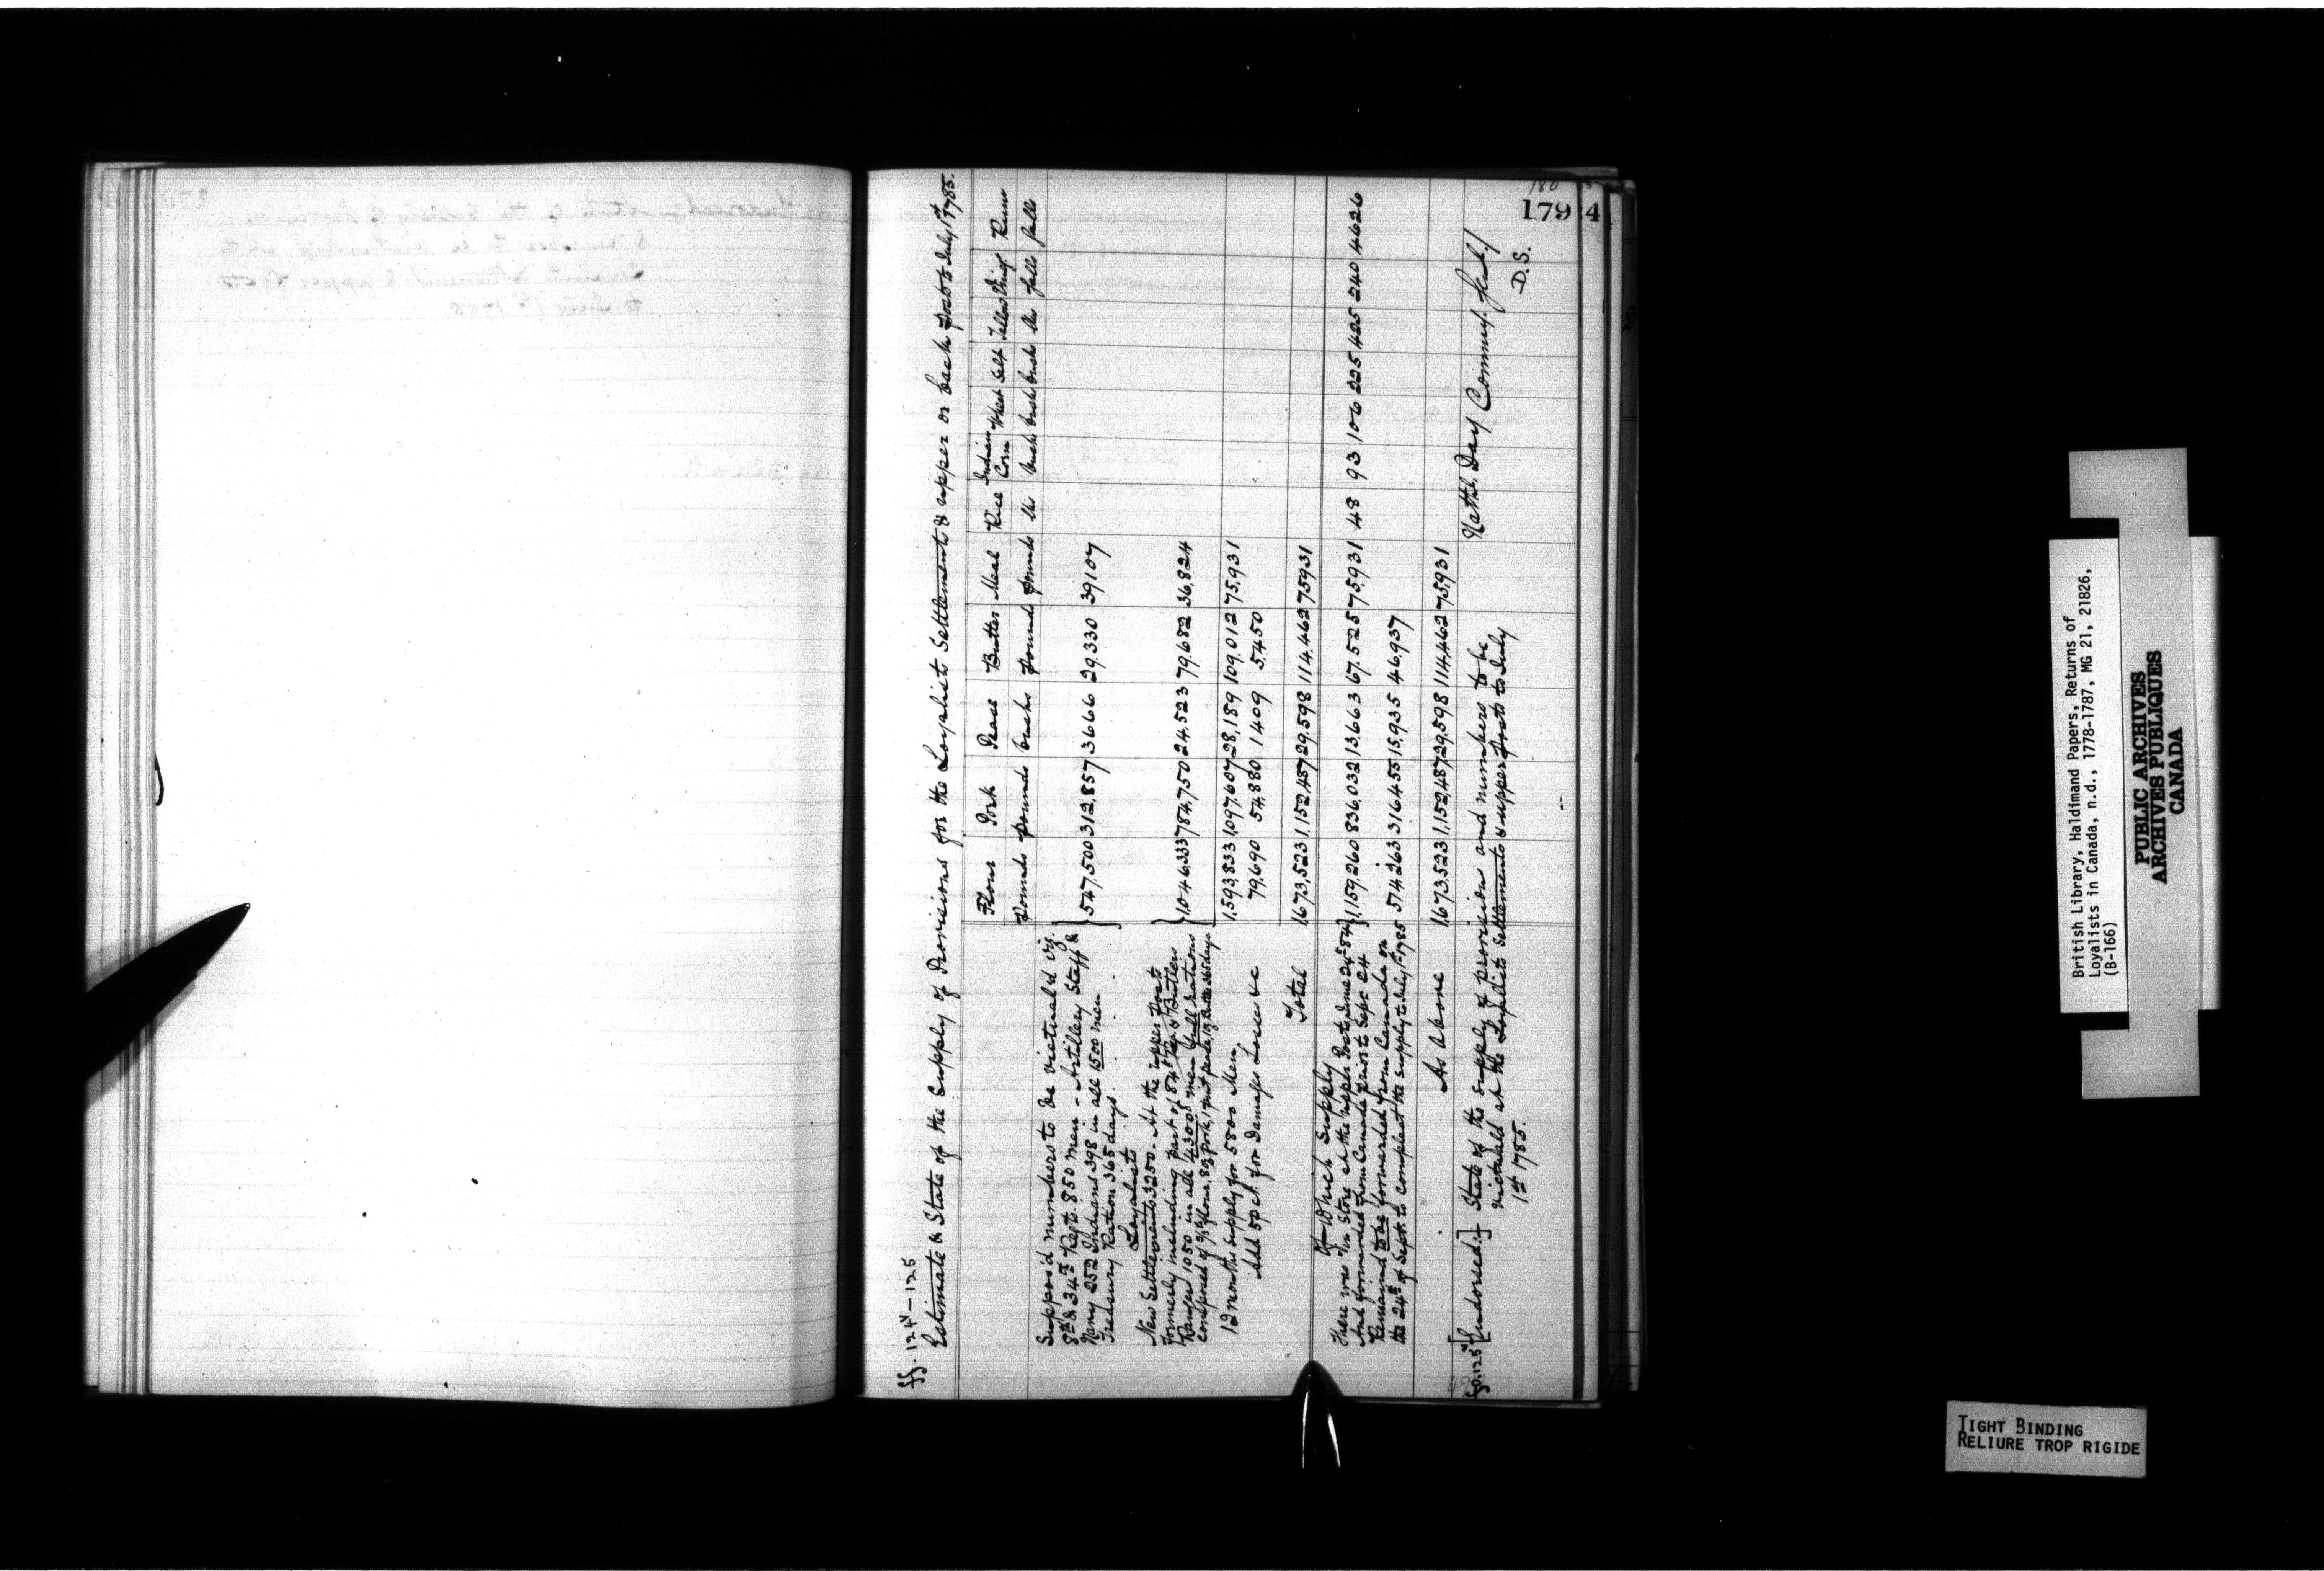 180
179 4
ff. 124v-125
Estimate & State of the Supply of Provisions for the Loyalist Settlements & upper or back Posts to July 1st 1785.
Flour Pork Pease Butter Meal Rice Indian Corn Wheat Salt Tallow Vinigr Rum
Pounds Pounds bushs Pounds Pounds lbs bush bush bush lbs Galls Galls
Suppos'd numbers to be victual'd viz.
8th & 34th Regt. 850 men - Artillery Staff &
Navy 252 Indians 398 in all 1500 men
Treasury Ration 365 days.
547,500 312,857 3666 29,330 39107
Loyalists
New Settlements 3250. At the upper Posts
formerly including part of 84th Reg. & Butlers
Rangers 1050 in all 4300 men full rations
composed of
1,046,333 784,750 24,523 79,682 36,824
12 months supply for 5800 Men 1,593,833 1,097,607 28,189 109,012 75,931
Add 5 p ct. for Damages Losses &c 79,690 54,880 1409 5,450
Total 1,673,523 1,152,487 29,598 114,462 75931
Of Which Supply
There was in Store at the upper Posts June 24th 84
And forwarded from Canada prior to Sept 24
1,159,260 836,032 13,663 67,525 75,931 48 93 106 225 425 240 4626
Remaind to be forwarded from Canada on
the 24th of Sept. to compleat the supply to July 1st 1785 514263 316455 15,935 46,937
As Above 1,673,523 1,152,487 29,598 114,462 75,931
fo. 125v [Endorsed:] State of the supply of provision and numbers to be
victuald at the Loyalists Settlements & upper Posts to July
1st 1785.
Nathl. Day Commy. Genl./
D.S.
British Library, Haldimand Papers, Returns of
Loyalists in Canada, n.d., 1778-1787, MG 21, 21826,
(B-166)
PUBLIC ARCHIVES
ARCHIVES PUBLIQUES
CANADA
TIGHT BINDING
RELIURE TROP RIGIDE